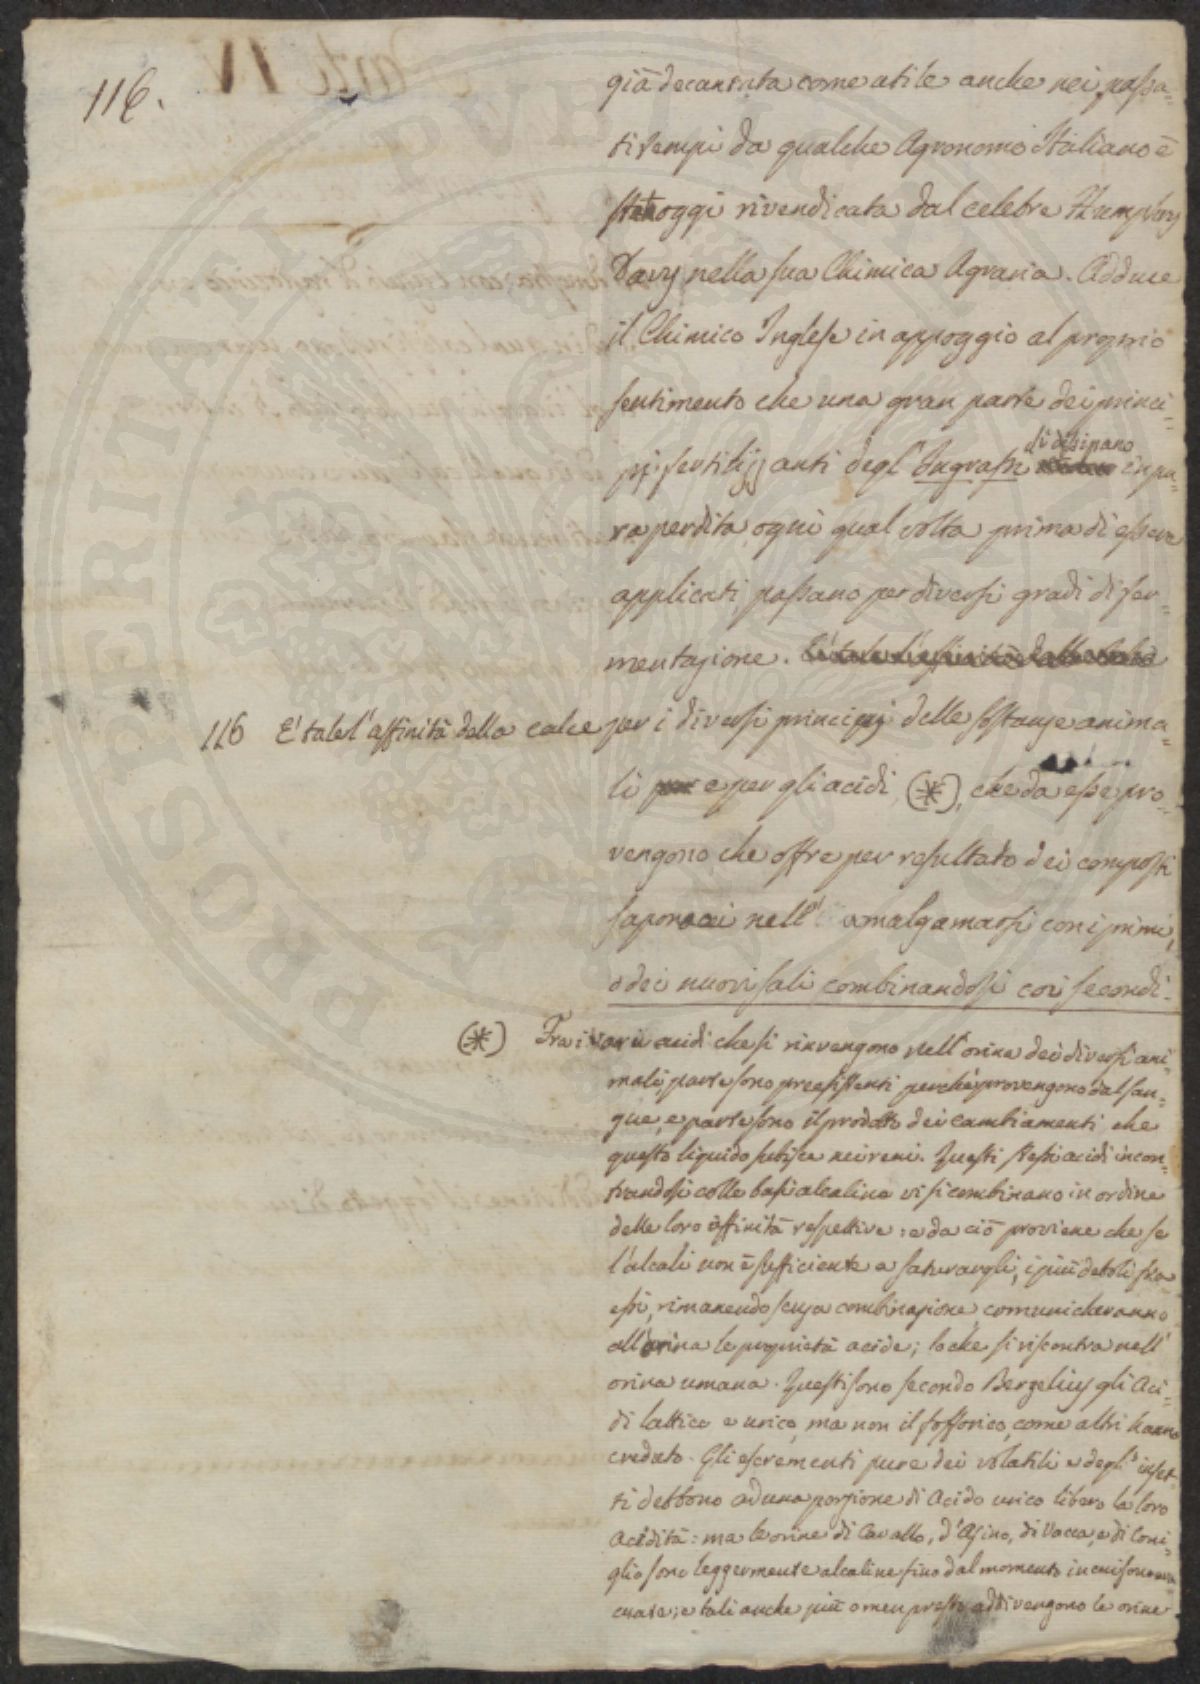 116.
già decantata come utile anche nei passa=
ti tempi da qualche Agronomo Italiano è
oggi rivendicata dal celebre Humphry
Davy nella sua Chimica Agraria. Adduce
il Chimico Inglese in appoggio al proprio
sentimento che una gran parte dei princi=
pj fertilizzanti degl'Ingrassi si dissipano in pu=
ra perdita, ogni qual volta prima di essere
applicati passano per diversi gradi di fer=
mentazione. E' tale l'affinità della calce
116 E' tale l'affinità della calce per i diversi principj delle sostanze anima=
li e per gli acidi (*), che da esse pro=
vengono, che offre per resultato dei composti
saponacei nell' amalgamarsi con i primi,
o dei nuovi sali combinandosi coi secondi.
(*) Fra i varii acidi che si rinvengono nell'orina dei diversi ani=
mali, parte sono preesistenti perchè provengono dal san=
gue, e parte sono il prodotto dei cambiamenti, che
questo liquido subisce nei reni. Questi stessi acidi incon=
trandosi colle basi alcaline vi si combinano in ordine
delle loro affinità respettive: e da ciò proviene che se
l'alcali non è sufficiente a saturargli, i più deboli fra
essi, rimanendo senza combinazione, comunicheranno
all'orina le proprietà acide; loche si riscontra nell'
orina umana. Questi sono secondo Berzelius gli Aci=
di lattico e urico, ma non il fosforico, come altri hanno
creduto. Gli escrementi pure dei volatili e degl'inset=
ti debbono ad una porzione di Acido urico libero la loro
Acidità: ma le orine di Cavallo, d'Asino, di Vacca, e di Coni=
glio sono leggermente alcaline fino dal momento in cui sono eva
cuate; e tali anche più o men presto addivengono le orine